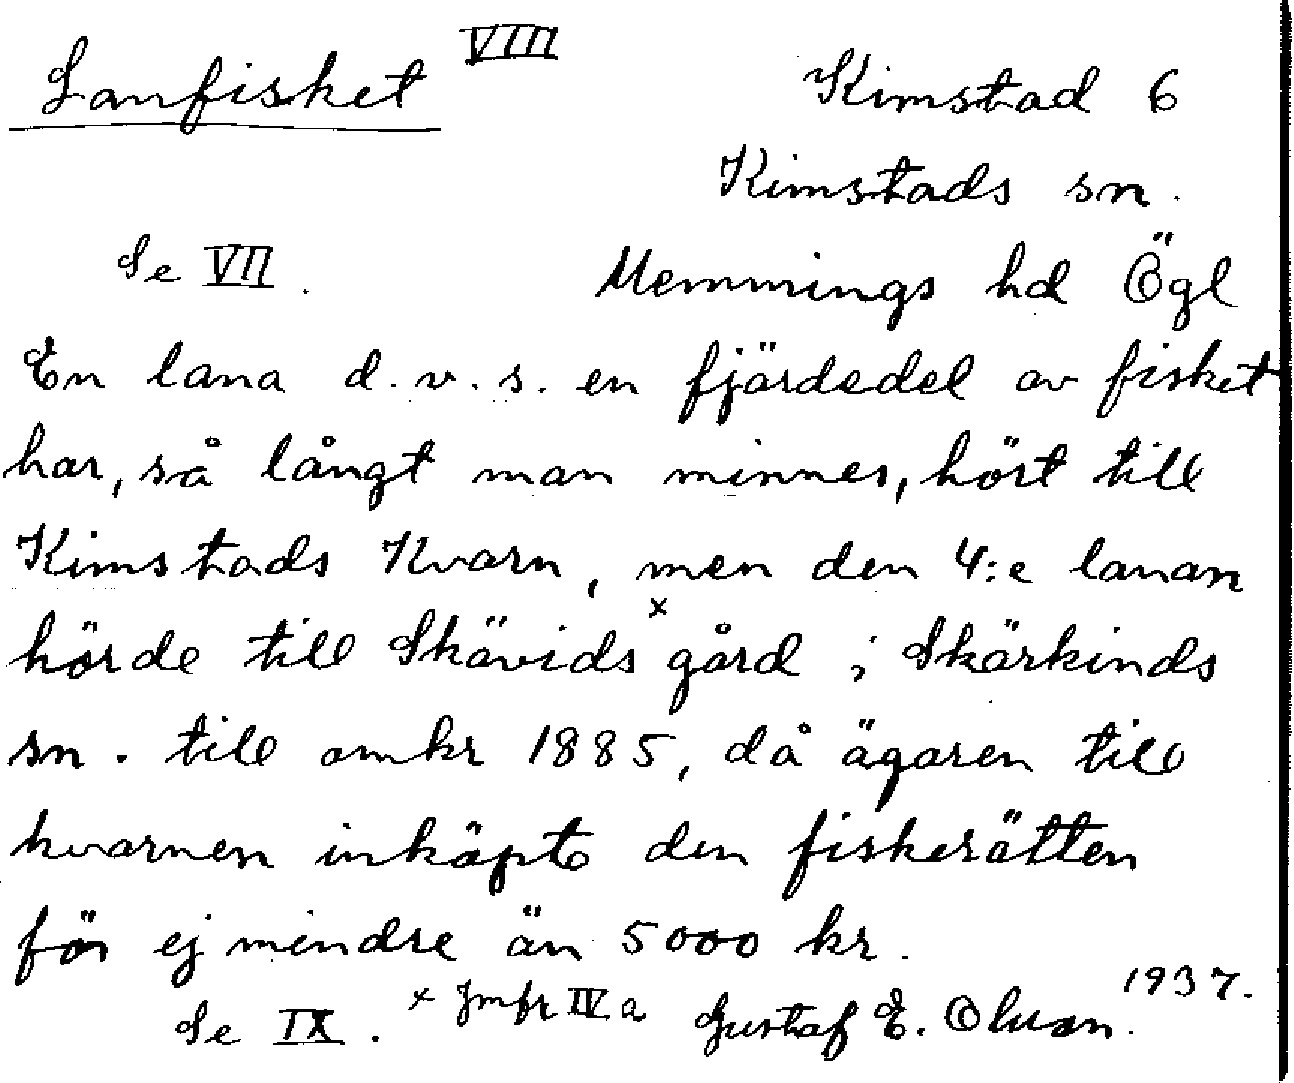 Lanfisket VIII
Kimstad 6
Kimstads sn.
Se VII.
Memmings hd Ögl
En lana d.v.s. en fjärdedel av fisket
har, så långt man minnes, hört till
Kimstads Kvarn, men den 4:e lanan
hörde till Skävids x gård i Skärkinds
sn. till omkr 1885, då ägaren till
kvarnen inköpte den fiskerätten
för ej mindre än 5000 kr.
Se IX. x Jmfr IV a Gustaf E. Olsson. 1937.